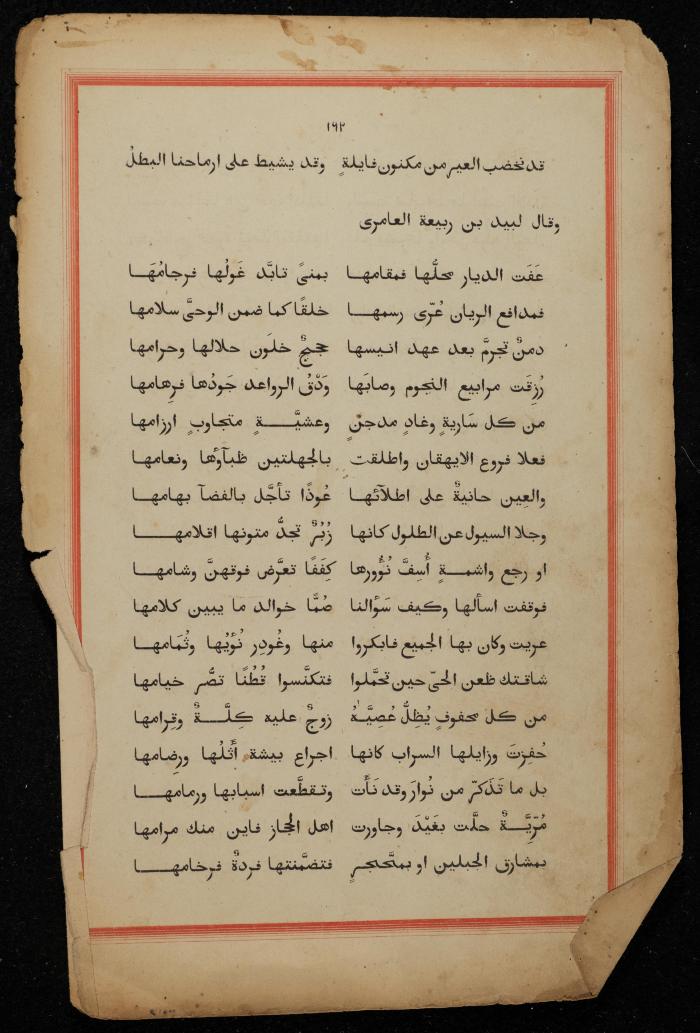 ١٦٢
قد نخضب العير من مكنون فايلةٍ وقد يشيط على ارماحنا البطلُ
وقال لبيد بن ربيعة العامرى
عَفَت الديار محلَّها فمقامهـا بمنىً تابَّد غَولُها فرجامُهَـا
فمدافع الريان عُرّى رسمهـا خلقًا كما ضمن الوحىَّ سلامها
دمنٌ تجرمَّ بعد عهد انيسها حججٌ خلَون حلالها وحرامها
رُزِقَت مرابيع النجوم وصابَها وَدْقُ الرواعد جَودُها فرِهامها
من كل سَاريةٍ وغادٍ مدجنٍ وعشيَّـةٍ متجاوبٍ ارزامها
فعلا فروع الايهقان واطلقت بالجهلتين ظبآوُها ونعامها
والعِين حانيةٌ على اطلآئها عُوذًا تأجَّل بالفضآ بهامهـا
وجلا السيول عن الطلول كانها زُبُرٌ تجدُّ متونها اقلامهـا
او رجع واشمـةٍ أُسِفَّ نُوُورها كِفَفًا تعرَّض فوقهنَّ وشامهـا
فوقفت اسألها وكيف سَؤالنا صُمًّا خوالد ما يبين كلامها
عريت وكان بها الجميع فابكروا منها وغُودِر نُوُيُها وثُمَامهـا
شاقتك ظعن الحىّ حين تحمَّلوا فتكنَّسوا قُطُنًا تصُّر خيامها
من كل محفوفٍ يُظِلُّ عُصِيَّـهُ زوجٌ عليه كِلَّـةٌ وقِرامها
حُفِزتَ وزايلها السراب كانها اجراع بيشة أَثلُها ورِضامها
بل ما تَذَكرّ من نُوارَ وقد نَأَت وتقطَّعت اسبابها ورمامهـا
مُرّيَّـةٌ حلَّت بغَيْدَ وجاورت اهل الحجاز فاين منك مرامها
بمشارق الجبلين او بمتَّحجرٍ فتضَّمنتها فردةٌ فرخامهـا